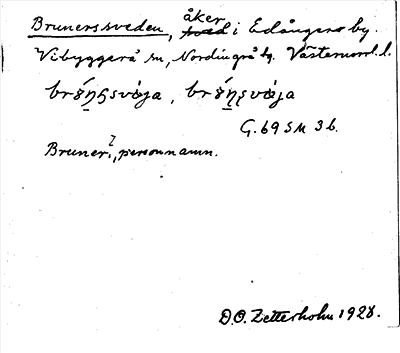 Brunerssveden, åker i Edångers by.
Vibyggerå sn, Nordingrå tg. Västernorrl. l.
G. 69 SM 3 b.
Bruner?, personnamn.
D.O. Zetterholm 1928.